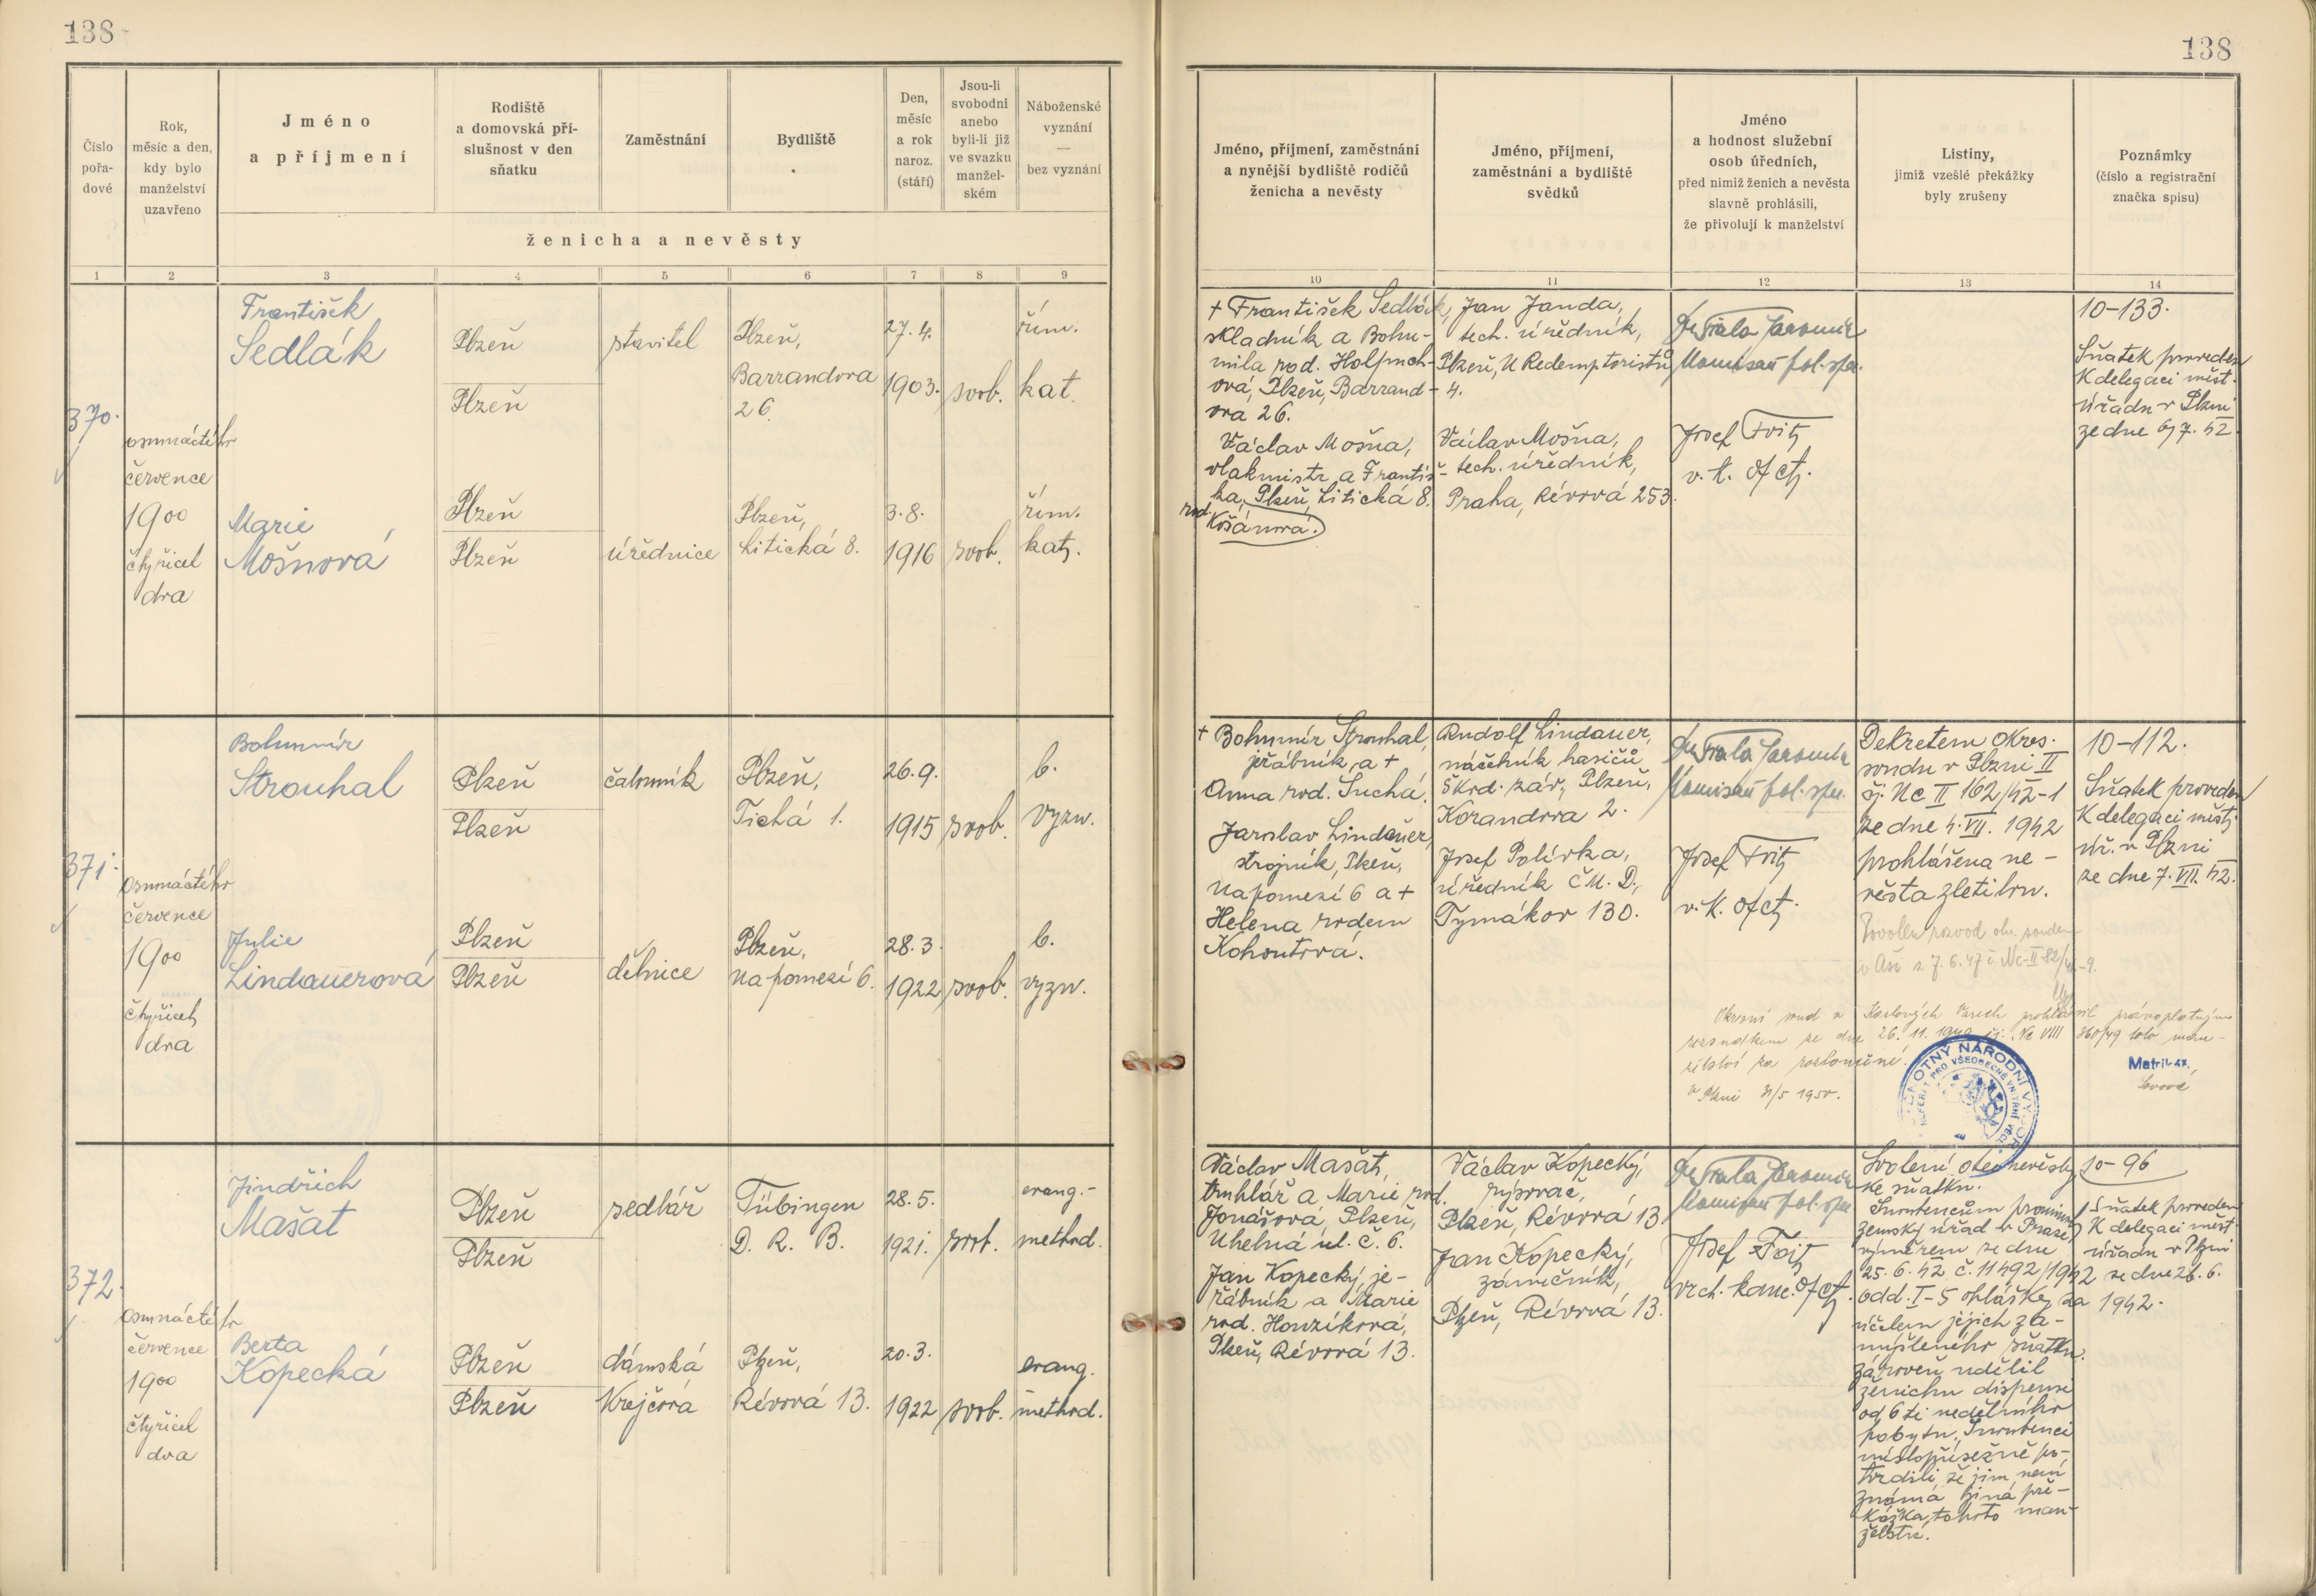 138
138
Číslo pořa-dové
Rok, měsíc a den, kdy bylo manželství uzavřeno
Jméno a příjmení
Rodiště a domovská pří-slušnost v den sňatku
Zaměstnání
Bydliště
Den, měsíc a rok naroz. (stáří)
Jsou-li svobodni anebo byli-li již ve svazku manžel-ském
Náboženské vyznání — bez vyznání
ženicha a nevěsty
1 2 3 4 5 6 7 8 9
Jméno, příjmení, zaměstnání a nynější bydliště rodičů ženicha a nevěsty
Jméno, příjmení, zaměstnání a bydliště svědků
Jméno a hodnost služební osob úředních, před nimiž ženich a nevěsta slavně prohlásili, že přivolují k manželství
Listiny, jimiž vzešlé překážky byly zrušeny
Poznámky (číslo a registrační značka spisu)
10 11 12 13 14
370.
osmnáctého
července
1900
čtyřicet
dva
František
Sedlák
Plzeň
Plzeň
stavitel
Plzeň,
Barrandova
26.
27. 4.
1903.
svob.
řím.
kat.
Marie
Mošnová
Plzeň
Plzeň
úřednice
Plzeň,
Litická 8.
3. 8.
1916
svob.
řím.
kat.
+ František Sedlák,
skladník a Bohu-
mila rod. Holpuch-
ová, Plzeň, Barrand-
ova 26.
Václav Mošna,
vlakmistr a Františ-
ka, Plzeň, Litická 8.
rod. Košánová.
Jan Janda,
tech. úředník,
Plzeň, U Redemptoristů
4.
Václav Mošna,
tech. úředník,
Praha, Révová 253.
Dr Fiala Jaromír
Komisař pol. spr.
Josef Foitj
v. k. ofctj.
10-133.
Sňatek proveden
K delegaci měst.
úřadu v Plzni
ze dne 6/7. 42.
371.
osmnáctého
července
1900
čtyřicet
dva
Bohumír
Strouhal
Plzeň
Plzeň
čalouník
Plzeň,
Tichá 1.
26. 9.
1915
svob.
b.
vyzn.
Julie
Lindauerová
Plzeň
Plzeň
dělnice
Plzeň,
Na pomezí 6.
28. 3.
1922
svob.
b.
vyzn.
+ Bohumír Strouhal,
jeřábník, a +
Anna rod. Suchá.
Jaroslav Lindauer,
strojník, Plzeň,
Na pomezí 6 a +
Helena rodem
Kohoutová.
Rudolf Lindauer,
náčelník hasičů
Škod. záv., Plzeň,
Korandova 2.
Josef Polívka,
úředník ČM. D.,
Tymákov 130.
Dr Fiala Jaromír
Komisař pol. spr.
Josef Foitj
v. k. ofctj.
Dekretem okres.
soudu v Plzni II
čj. Nc II 162/42-1
ze dne 4. VII. 1942
prohlášena ne-
věsta zletilou.
Povolen rozvod okr. soudem
v Aši z 7. 6. 47 č. Nc-II-82/46-9.
10-112.
Sňatek proveden
K delegaci městj
úř. v Plzni
ze dne 7. VII. 42.
Okresní soud v Karlových Varech prohlásil právoplatným
rozsudkem ze dne 26. 11. 1949 čj. Nc VIII 360/49 toto man-
želství za rozloučené.
V Plzni 31/5 1950.
NÁRODNÍ VÝBOR
REFERÁT PRO VŠEOBECNÉ VNITŘNÍ VĚCI
372.
osmnáctého
července
1900
čtyřicet
dva
Jindřich
Mašat
Plzeň
Plzeň
sedlář
Tübingen
D. R. B.
28. 5.
1921.
svob.
evang.-
method.
Berta
Kopecká
Plzeň
Plzeň
dámská
Krejčová
Plzeň,
Révová 13.
20. 3.
1922
svob.
evang.
method.
Václav Mašat,
truhlář a Marie rod.
Jonášová, Plzeň,
Uhelná ul. č. 6.
Jan Kopecký, je-
řábník a Marie
rod. Houzíková,
Plzeň, Révová 13.
Václav Kopecký,
rýsovač,
Plzeň, Révová 13
Jan Kopecký,
zámečník,
Plzeň, Révová 13.
Dr Fiala Jaromír
Komisař pol. spr.
Josef Foitj
vrch. kanc. ofctj.
Svolení otce nevěsty
ke sňatku.
Snoubencům prominul
zemský úřad v Praze
výměrem ze dne
25. 6. 42 č. 11492/1942
odd. I-5 ohlášky za
účelem jejich za-
mýšleného sňatku.
zároveň udělil
ženichu dispensi
od 6ti nedělního
pobytu. Snoubenci
místopřísežně po-
tvrdili, že jim není
známá jiná pře-
kážka, tohoto man-
želství.
10-96
Sňatek proveden
K delegaci měst.
úřadu v Plzni
ze dne 26. 6.
1942.